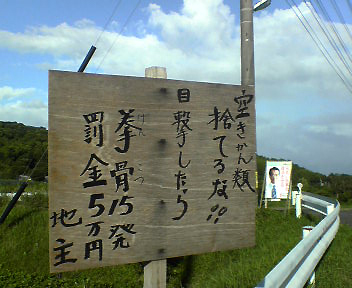 空きかん類
捨てるな!!
目撃したら
拳骨15発
げんこつ
罰金5万円
地主